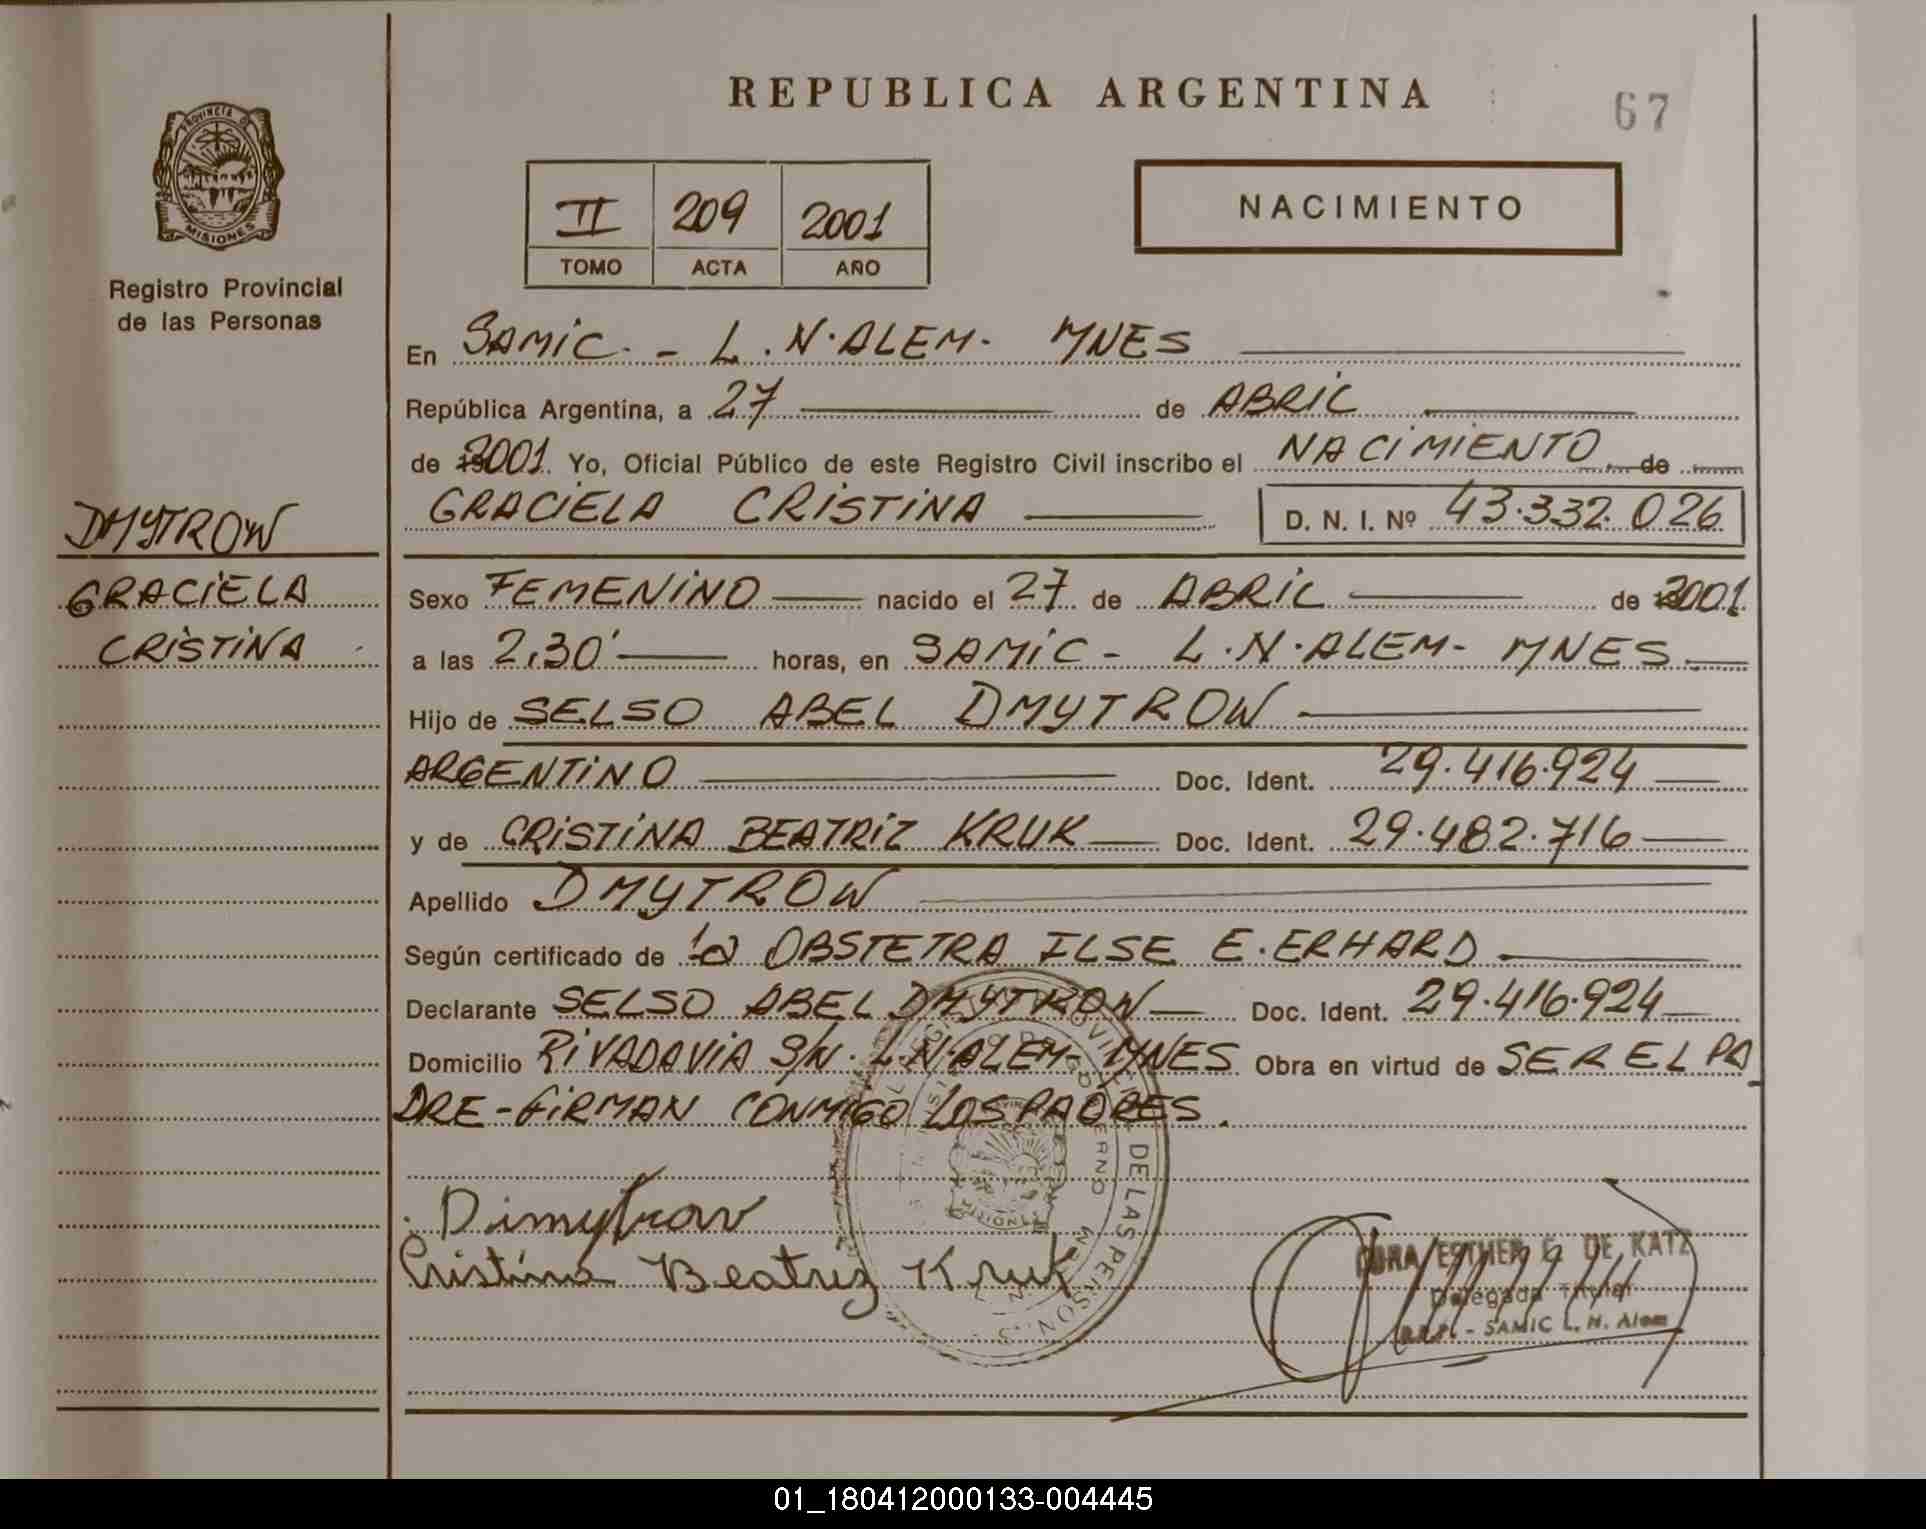 REPUBLICA ARGENTINA
67
PROVINCIA D
MISIONES
Registro Provincial
de las Personas
II 209 2001
TOMO ACTA AÑO
NACIMIENTO
En SAMIC. - L. N. ALEM. MNES
República Argentina, a 27 de ABRIL
de 2001. Yo, Oficial Público de este Registro Civil inscribo el NACIMIENTO de
GRACIELA CRISTINA D. N. I. Nº 43.332.026
DMYTROW
GRACIELA
CRISTINA
Sexo FEMENINO nacido el 27 de ABRIL de 2001
a las 2,30' horas, en SAMIC - L. N. ALEM - MNES
Hijo de SELSO ABEL DMYTROW
ARGENTINO Doc. Ident. 29.416.924
y de CRISTINA BEATRIZ KRUK Doc. Ident. 29.482.716
Apellido DMYTROW
Según certificado de la OBSTETRA ILSE E. ERHARD
Declarante SELSO ABEL DMYTROW Doc. Ident. 29.416.924
Domicilio RIVADAVIA S/N. L.N. ALEM - MNES Obra en virtud de SER EL PA
DRE - FIRMAN CONMIGO LOS PADRES.
DE LAS PERSON
Dimytrow
Cristina Beatriz Kruk
ESTHER E. DE KATZ
Delegada Titular
R.P.P. - SAMIC L. N. Alem
01_180412000133-004445